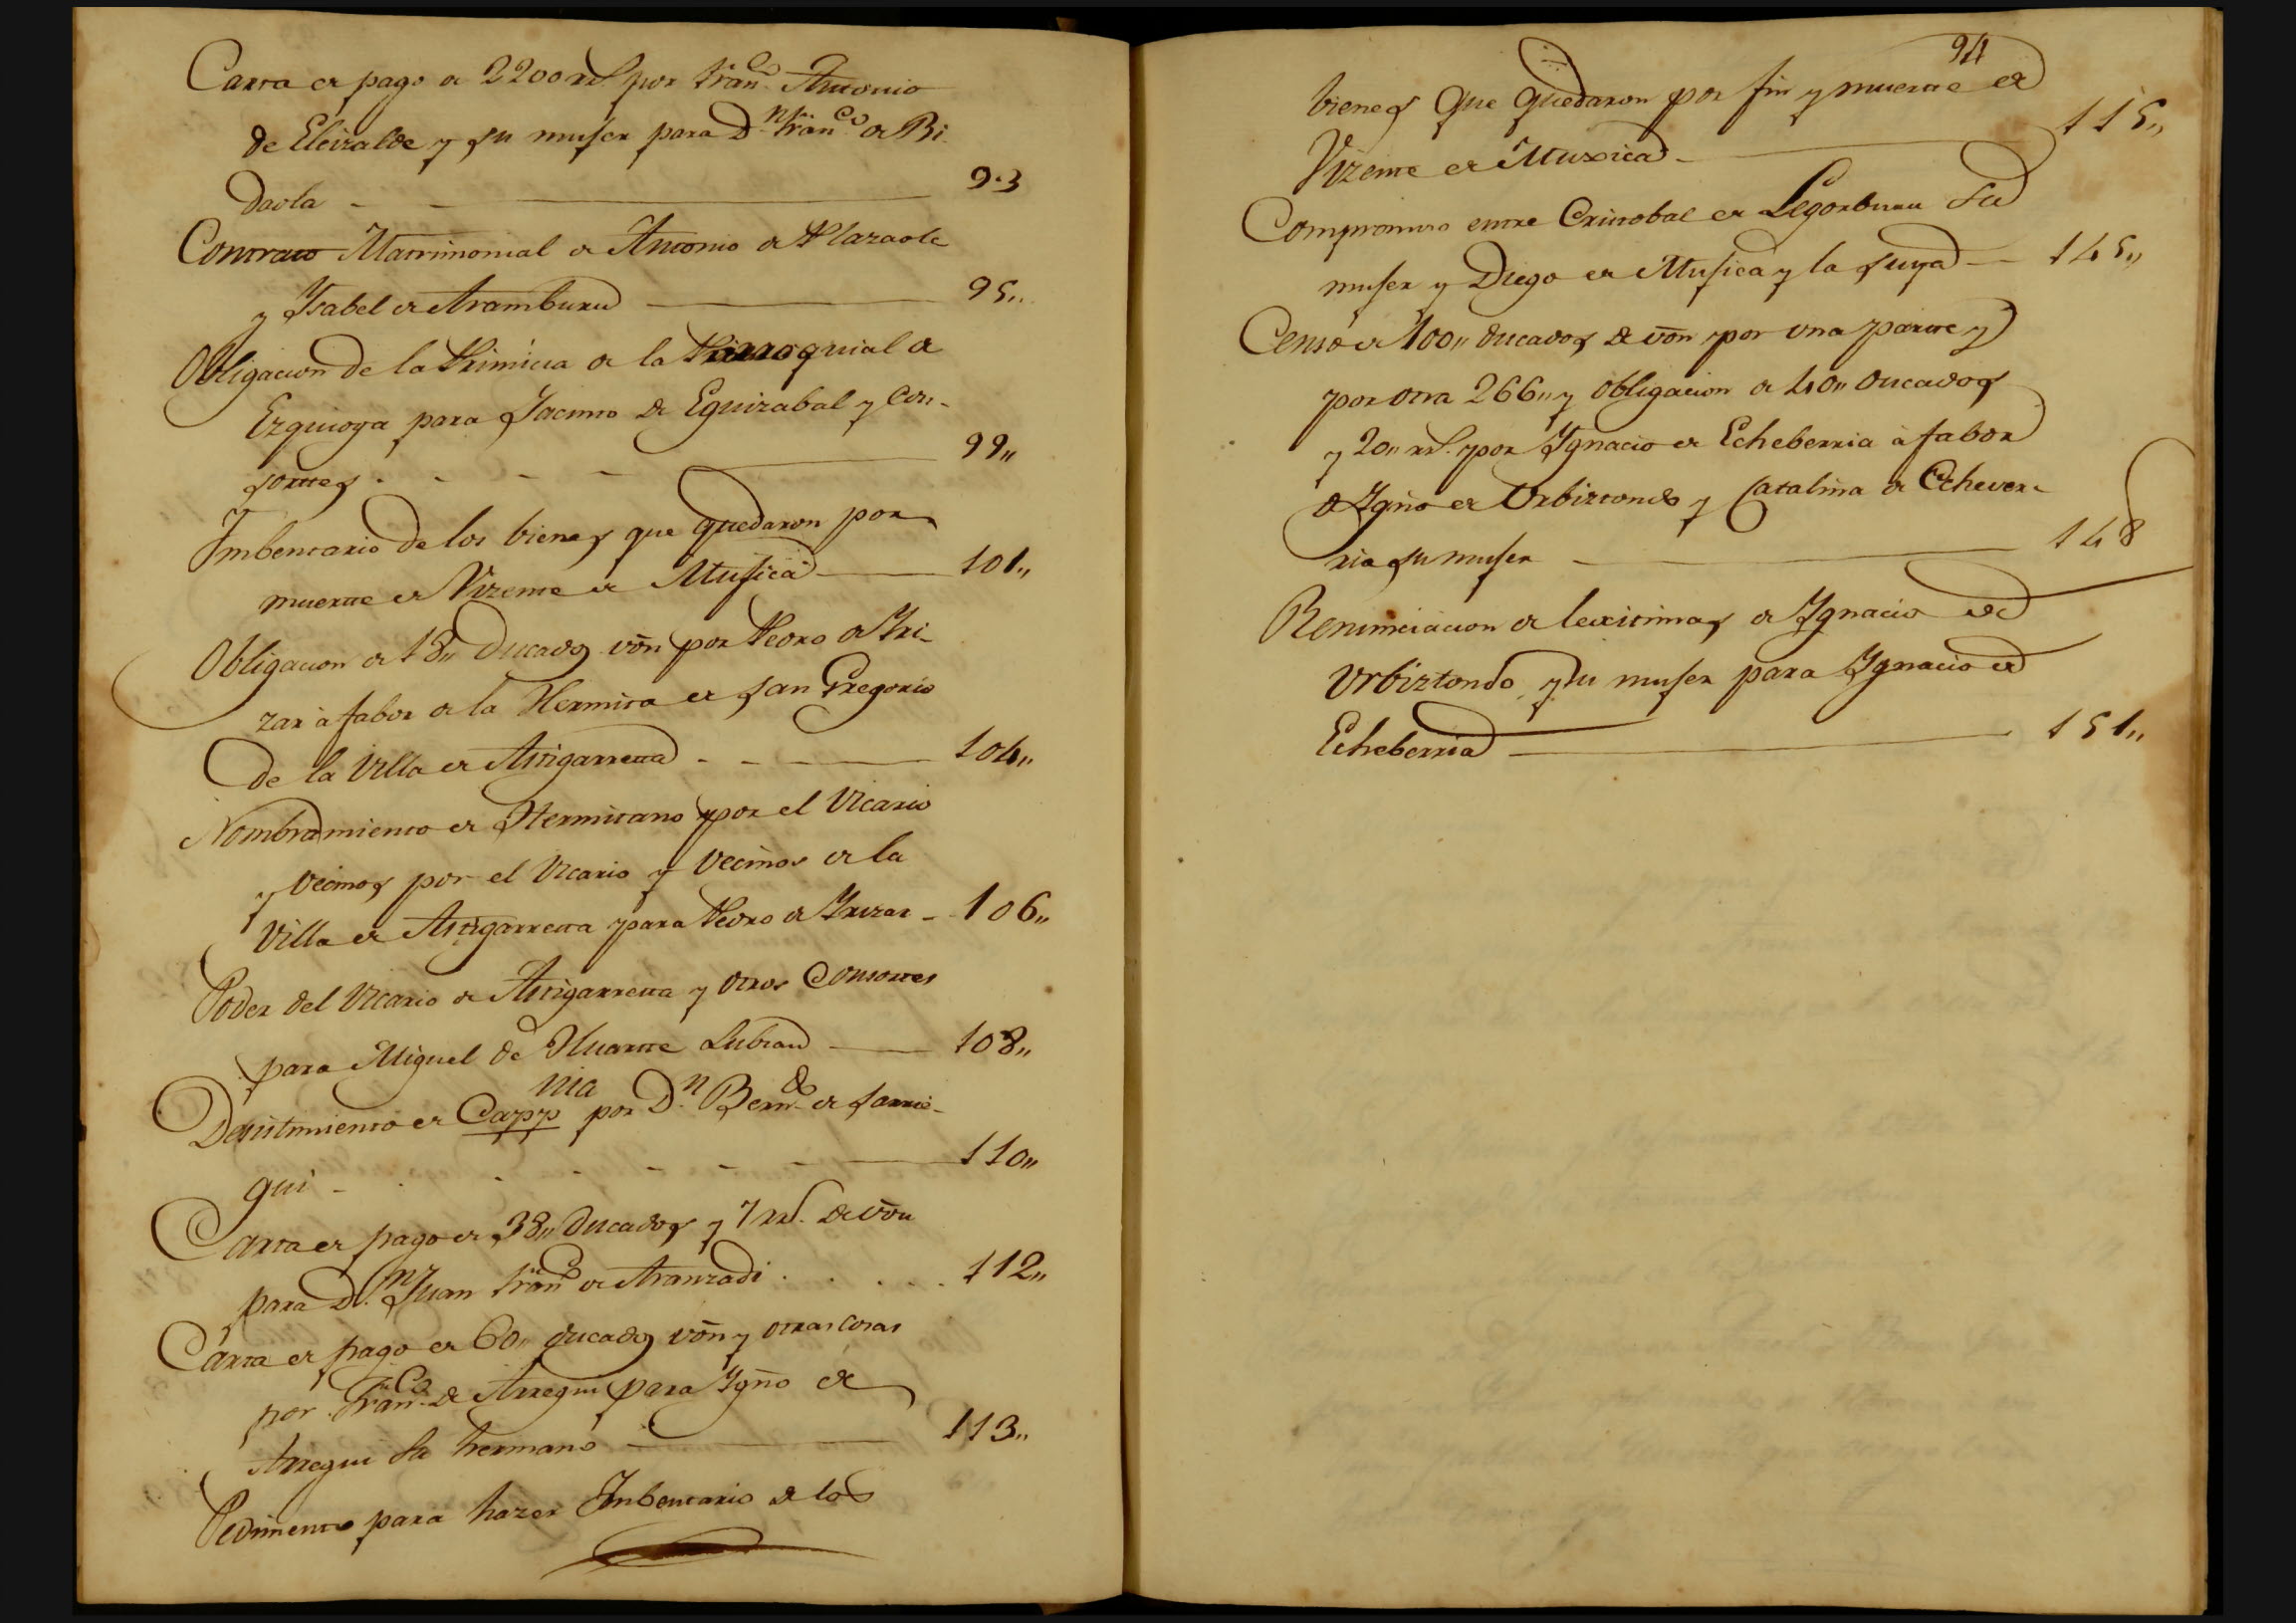 Carta de pago de 2200 rs. por Fran.co Antonio
de Eleizalde y su muger para D.n Fran.co de Bi-
daola - - 93
Contrato Matrimonial de Antonio de Plazaola
y Ysabel de Aramburu 95,,
Obligacion de la Primicia de la Parroquial de
Ezquioga para Jacinto de Eguizabal y con-
sortes . - - - 99,,
Imbentario de los bienes que quedaron por
muerte de Vizente de Mugica 101,,
Obligacion de 18,, Ducados von por Pedro de Yri-
zar à fabor de la Hermita de San Gregorio
de la Villa de Astigarreta - - - 104,,
Nombramiento de Hermitano por el Vicario
y vecinos por el Vicario y vecinos de la
Villa de Astigarreta para Pedro de Yrizar - 106,,
Poder del Vicario de Astigarreta y otros Consortes
para Miguel de Huarte Lubian 108,,
Desistimiento de Capp.nia por D.n Bern.do de Sarrie-
gui - . - - - - - 110,,
Carta de pago de 38,, Ducados y 7 rs. de von
para D.n Juan Fran.co de Aranzadi . . . . . 112,,
Carta de pago de 60,, ducados von y otras cosas
por Fran.co de Arregui para Ygño de
Arregui su hermano 113,,
Pedimento para hazer Imbentario de los
94
bienes que quedaron por fin y muerte de
Vizente de Muxica 115,,
Compromiso entre Cristobal de Legorburu su
muger y Diego de Mugica y la suya 145,,
Censo de 100,, ducados de von por una parte y
por otra 266,, y obligacion de 40,, Ducados
y 20,, rs. por Ygnacio de Echeberria à fabor
de Ygño de Urbiztondo y Catalina de Echever-
ria su muger 148
Renunciacion de lexitimas de Ygnacio de
Urbiztondo y su muger para Ygnacio de
Echeberria 151,,